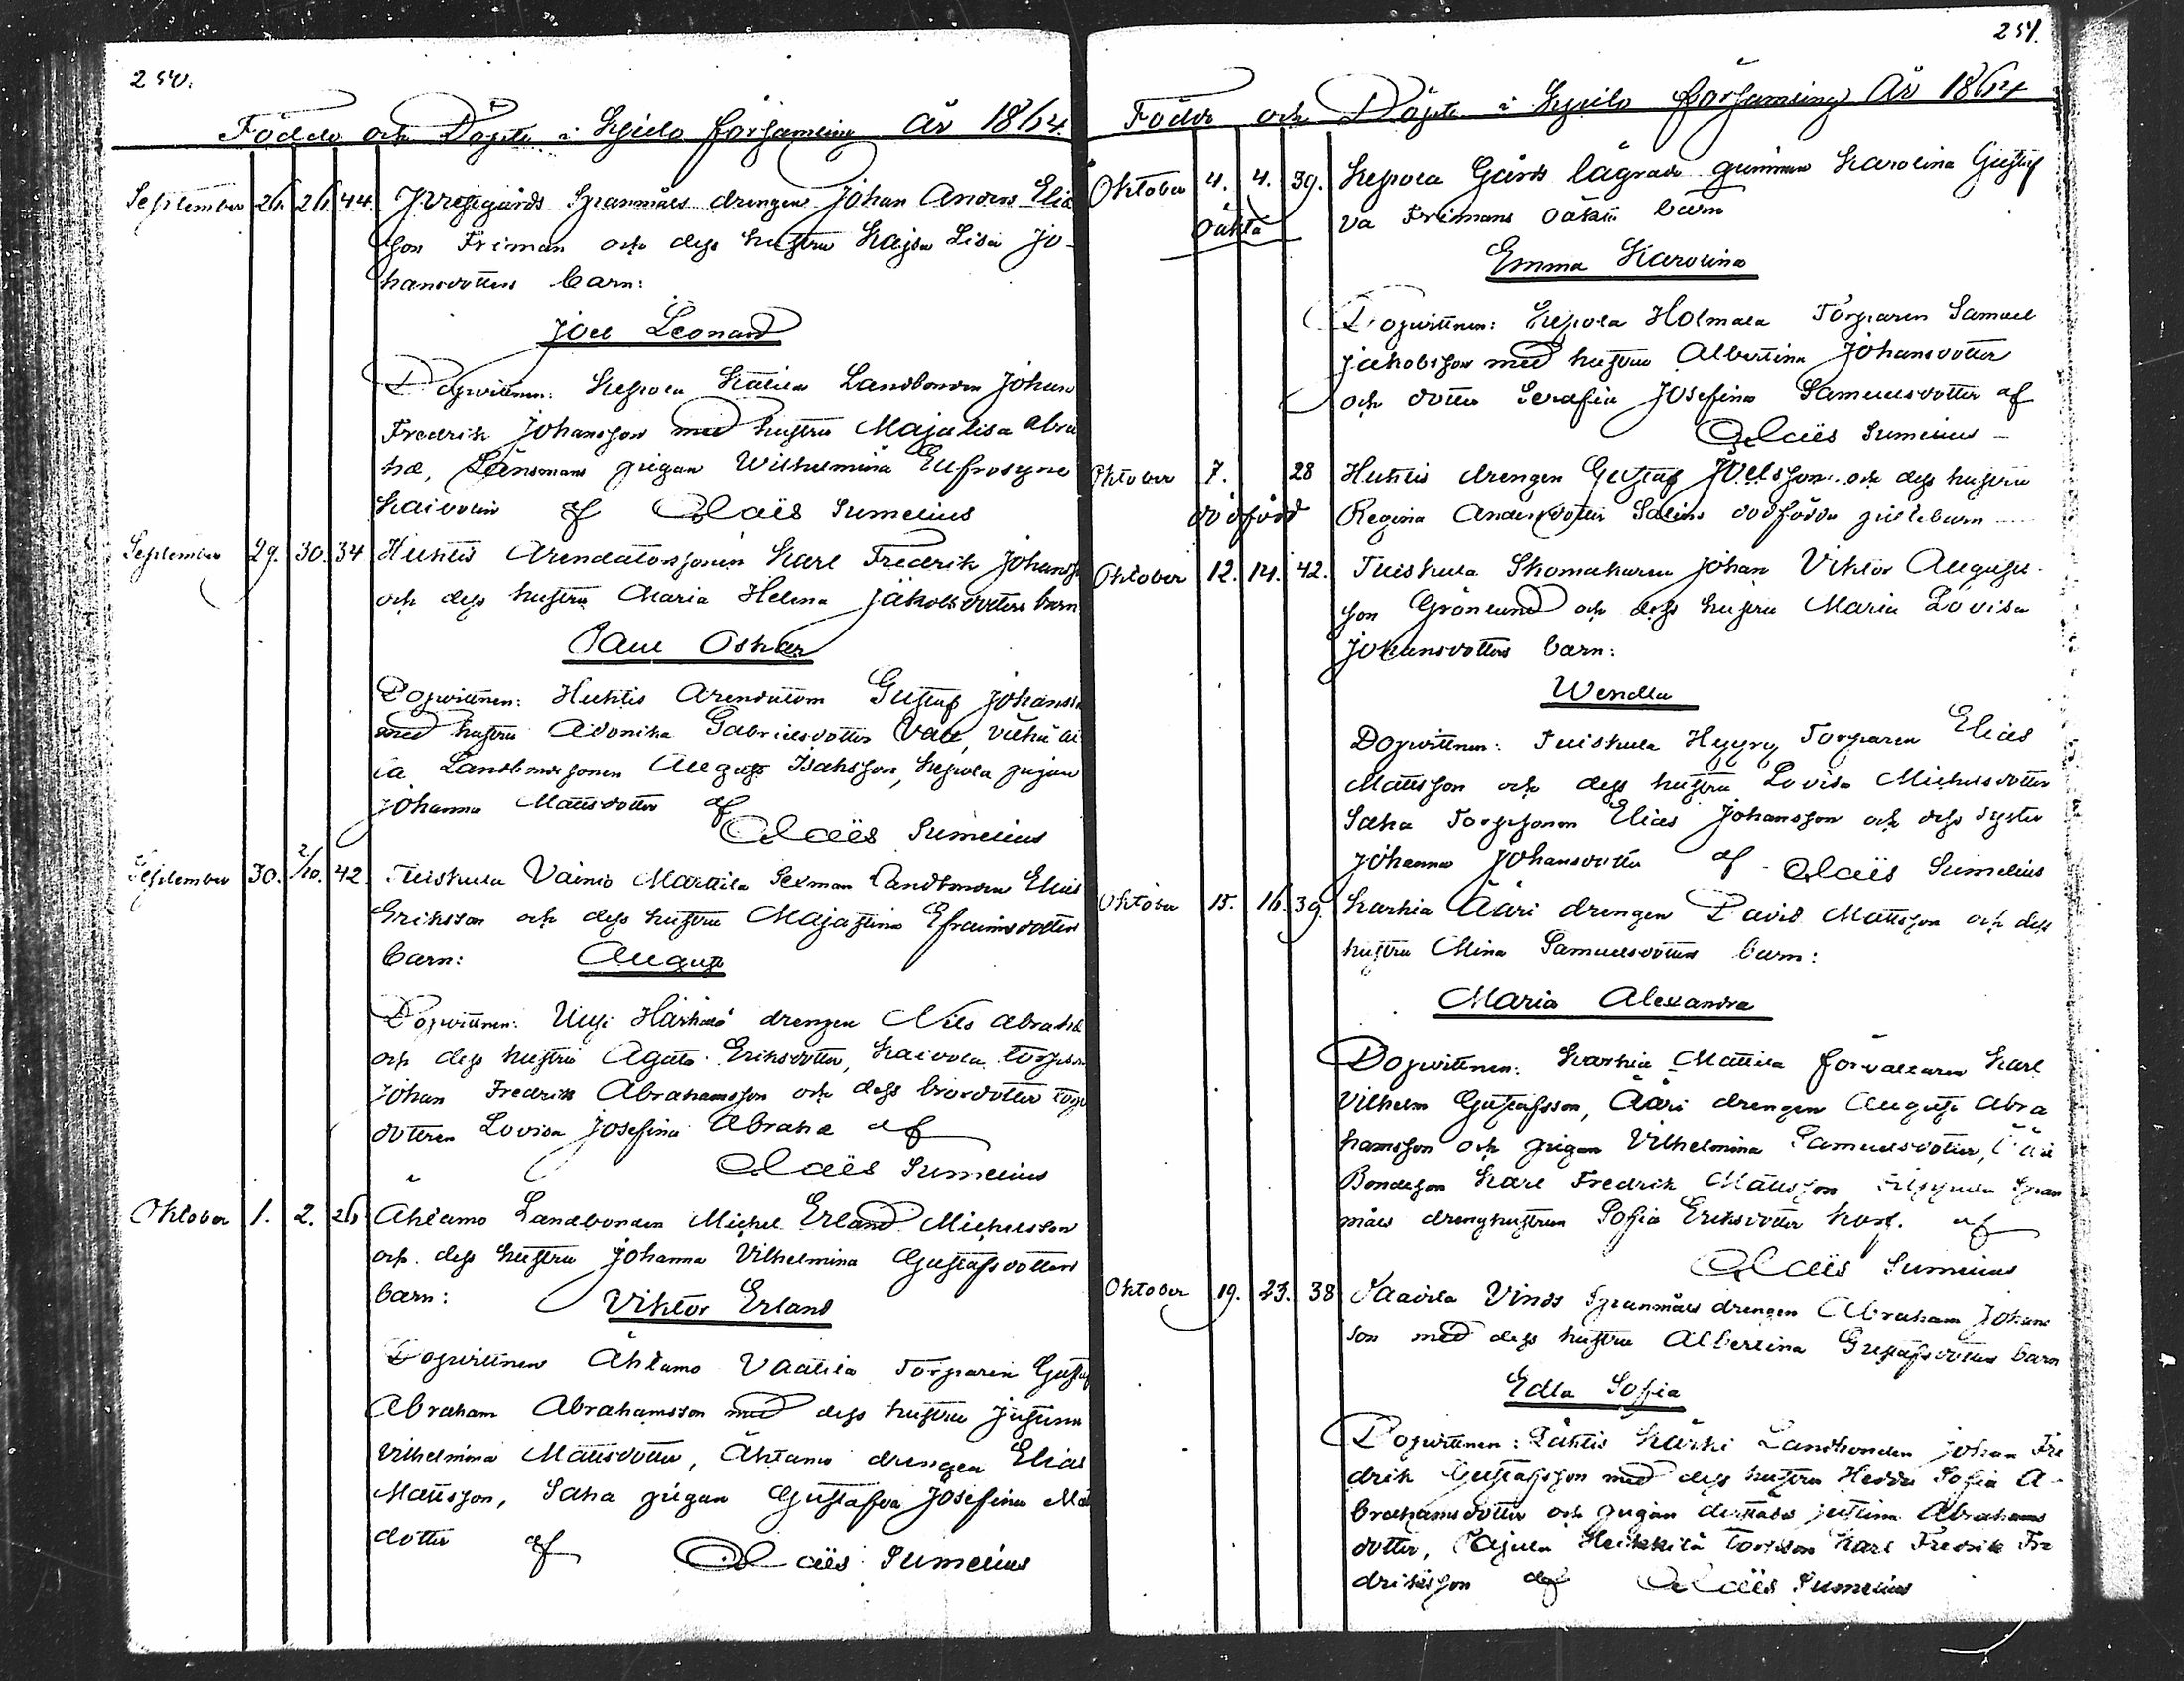 250.
Födde och Döpte i Kjulo församling År 1864.
September 26. 26. 44. Spanmåls drengen Johan Anders Elia
sson Friman och dess hustru Kajsa Lisa Jo-
hansdotters barn:
Joel Leonard
Dopvittnen: Kepola Landbonden Johan
Fredrik Johansson med hustru Majalisa Abra
hd, Länsmans pigan Wilhelmina Eufrosyne
af Claës Sumelius
September 29. 30. 34 Huhtis Arendatorssonen Karl Fredrik Johanss
och dess hustru Maria Helena Jakobsdotters barn
Paul Oskar
Dopvittnen: Huhtis Arendatorn Gustaf Johanss
med hustru Gabrielsdotter
Landbondesonen August Isaksson, Kepola pigan
Johanna Mattsdotter af
Claës Sumelius
September 30. 2/10. 42. Tuiskula Vainio Marttila Landbonden Elias
Eriksson och dess hustru Majastina Efraimsdotters
barn: August
Dopvittnen: drengen Nils Abrahd
och dess hustru Agata Eriksdotter, Kaivola
Johan Fredrik Abrahamsson och dess brordotter torp
dottren Lovisa Josefina Abrahd af
Claës Sumelius
Oktober 1. 2. 26 Ahlamo Landbonden Michel Erland Michelsson
och dess hustru Johanna Vilhelmina Gustafsdotters
barn: Viktor Erland
Dopvittnen Ahlamo Torparen Gustaf
Abraham Abrahamsson med dess hustru Justina
Vilhelmina Mattsdotter, Ahlamo drengen Elias
Mattsson, Saha pigan Gustafva Josefina Mat
dotter af Claës Sumelius
251.
Födde och Döpte i Kjulo församling År 1864
Oktober 4. 4. 39. Kepola Gårds lägrade qvinnan Karolina Gustaf
oäkta va Frimans oäkta barn
Emma Karolina
Dopvittnen: Kepola Holmala Torparen Samuel
Jakobsson med hustru Albertina Johansdotter
och dotter Serafia Josefina Samuelsdotter af
Claës Sumelius
Oktober 7. 28 Huhtis drengen Gustaf Joelsson och dess hustru
dödfödd Regina Andersdotter Salins dödfödda gossebarn
Oktober 12. 14. 42. Tuiskula Skomakaren Johan Viktor Augusts-
son Grönlund och dess hustru Maria Lovisa
Johansdotters barn:
Wendla
Dopvittnen: Tuiskula Torparen Elias
Mattsson och dess hustru Lovisa Michelsdotter
Saha Torpsonen Elias Johansson och dess syster
Johanna Johansdotter af Claës Sumelius
Oktober 15. 16. 39. Karhia Ääri drengen David Mattsson och dess
hustru Mina Samuelsdotters barn:
Maria Alexandra
Dopvittnen: Karhia Mattila förvaltaren Karl
Vilhelm Gustafsson, Ääri drengen August Abra
hamsson och pigan Vilhelmina Samuelsdotter, Ääri
Bondeson Karl Fredrik Mattsson Span
måls drenghustrun Sofia Eriksdotter af
Claës Sumelius
Oktober 19. 23. 38 Vaavila Vinds Spanmåls drengen Abraham Johans
son med dess hustru Albertina Gustafsdotters barn
Edla Sofia
Dopvittnen: Kärki Landbonden Johan Fre
drik Gustafsson med dess hustru Hedda Sofia A-
brahamsdotter och pigan Justina Abrahams
dotter, Pajula Heikkilä torpson Karl Fredrik Fre
driksson af Claës Sumelius